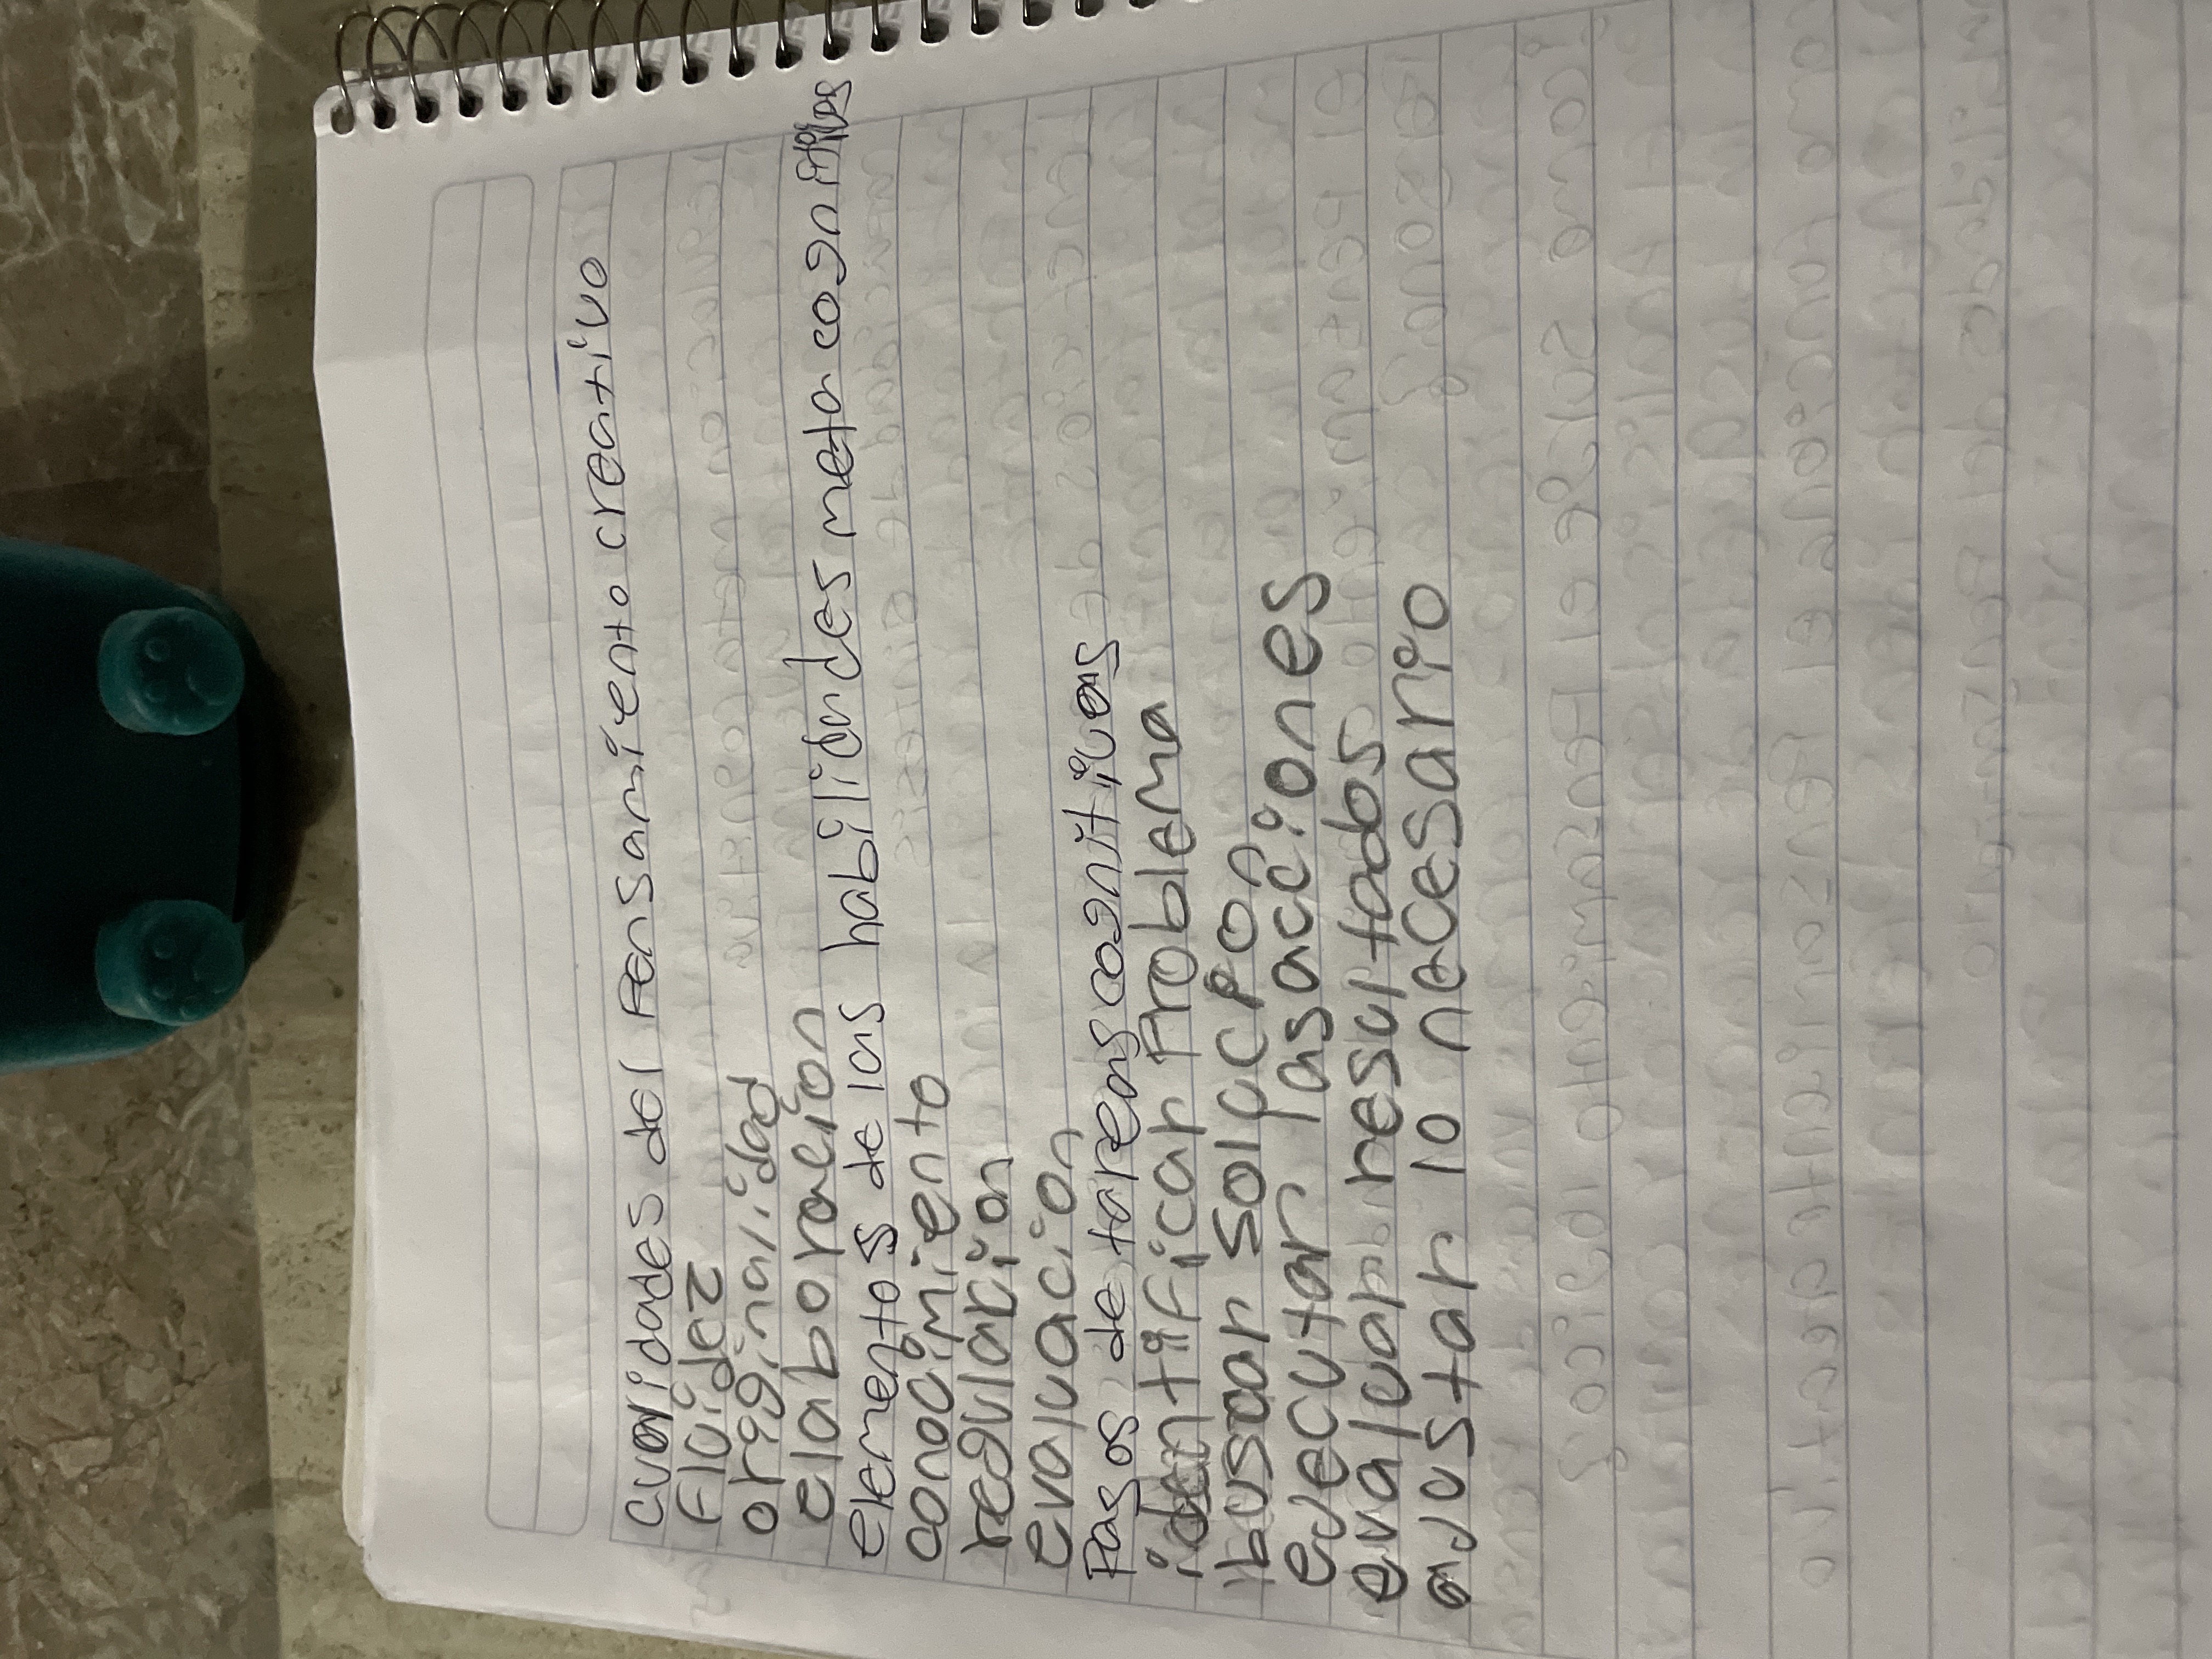 cualidades del Pensamiento creativo
Fluidez
originalidad
elaboración
elementos de las habilidades meta cognitivas
conocimiento
regulación
evaluación
Pasos de tareas cognitivas
identificar Problema
busaar solución
ejecutar las acciones
evaluar resultados
ajustar lo necesario